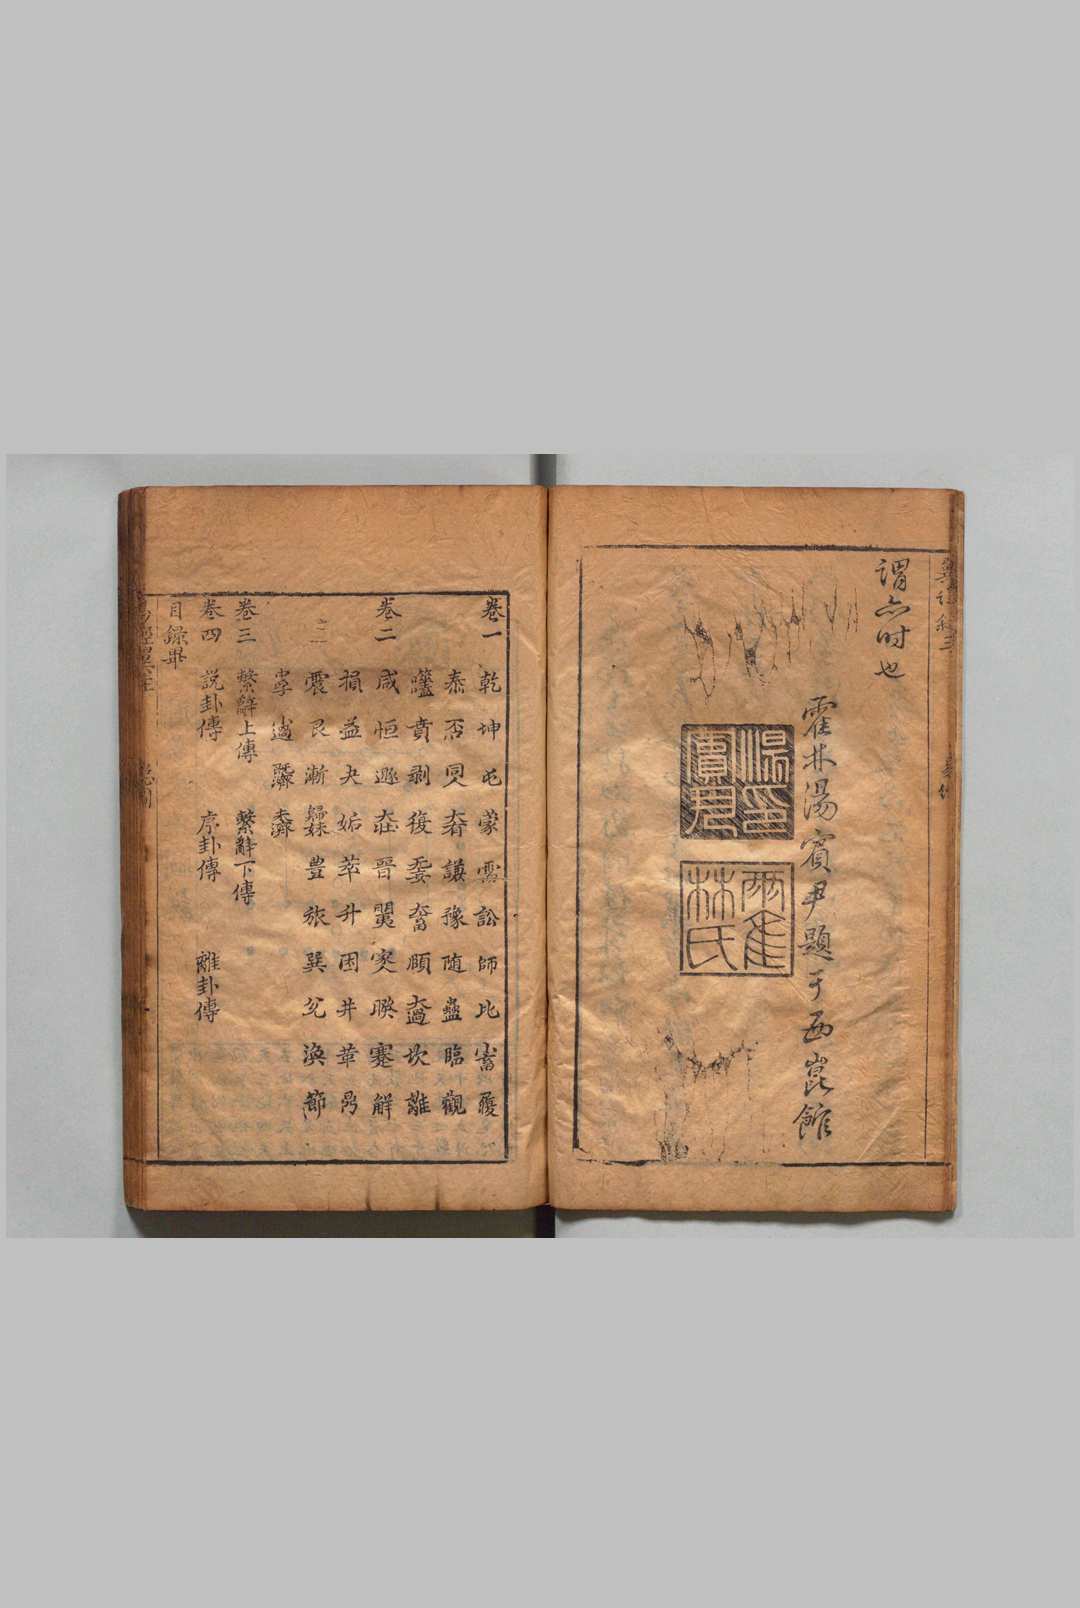 謂亦时也
霍林湯賓尹題于西崑館
湯印賓尹
霍林氏
卷一 乾 坤 屯 蒙 需 訟 師 比 小畜 履
泰 否 同人 大有 謙 豫 随 蠱 臨 觀
噬嗑 賁 剥 復 无妄 大畜 頤 大過 坎 離
卷二 咸 恒 遯 大壯 晉 明夷 家人 睽 蹇 解
損 益 夬 姤 萃 升 困 井 革 鼎
震 艮 漸 歸妹 豊 旅 巽 兌 渙 節
中孚 小過 旣濟 未濟
卷三 繫辭上傳 繫辭下傳
卷四 説卦傳 序卦傳 雜卦傳
目錄畢